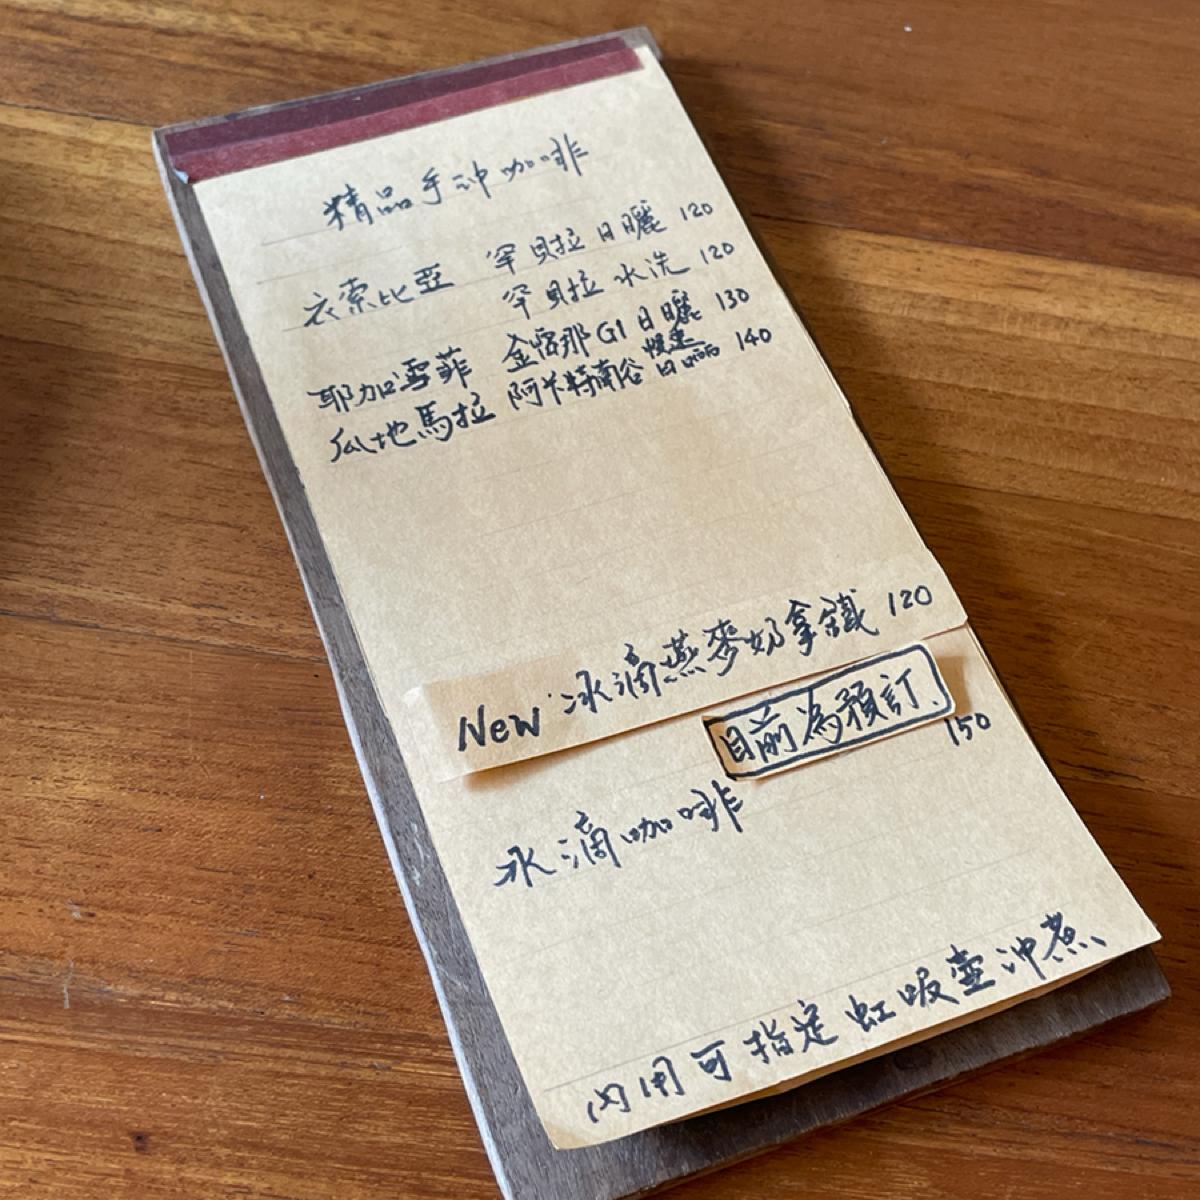 精品手沖咖啡
衣索比亞 罕貝拉 日曬 120
罕貝拉 水洗 120
耶加雪菲 金儂那 G1 日曬 130
瓜地馬拉 阿卡特南谷 日曬 140
New 冰滴燕麥奶拿鐵 120
目前為預訂、
150
冰滴咖啡
內用可指定虹吸壺沖煮、